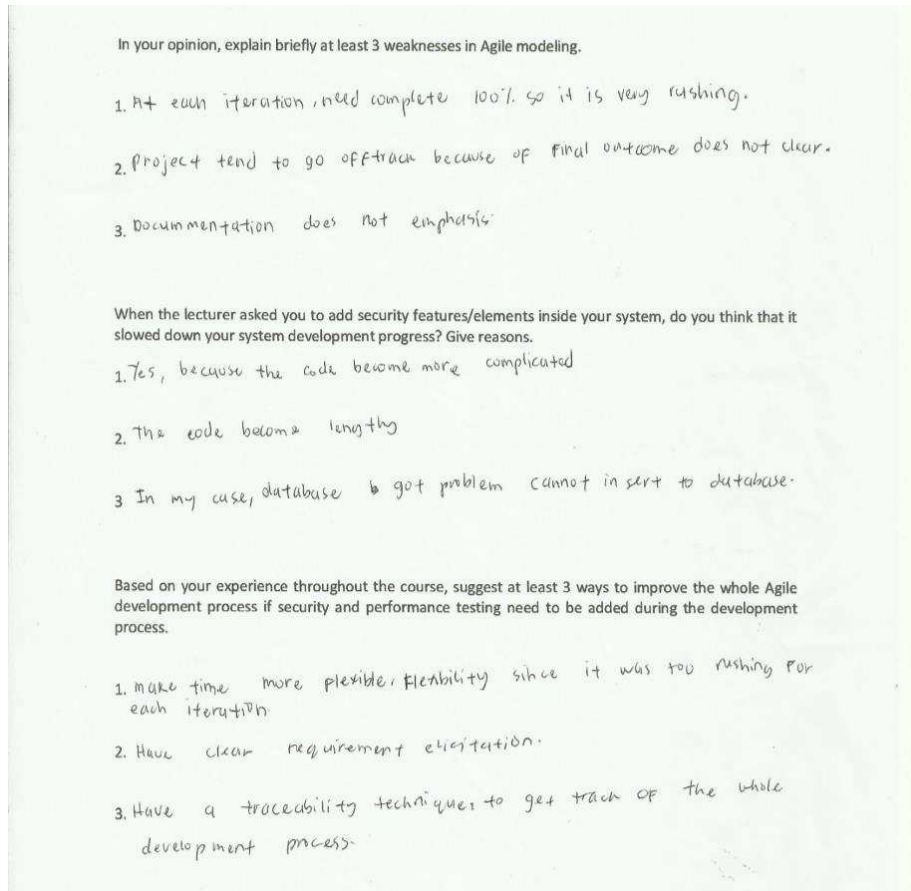 In your opinion, explain briefly at least 3 weaknesses in Agile modeling.
1. At each iteration, need complete 100% so it is very rushing.
2. Project tend to go offtrack because of final outcome does not clear.
3. Documentation does not emphasis
When the lecturer asked you to add security features/elements inside your system, do you think that it
slowed down your system development progress? Give reasons.
1. Yes, because the code become more complicated
2. The code become lengthy
3 In my case, database got problem cannot insert to database.
Based on your experience throughout the course, suggest at least 3 ways to improve the whole Agile
development process if security and performance testing need to be added during the development
process.
1. make time more plexible, flexibility since it was too rushing for
each iteration
2. Have clear requirement elicitation.
3. Have a traceability techniques to get track of the whole
development process.